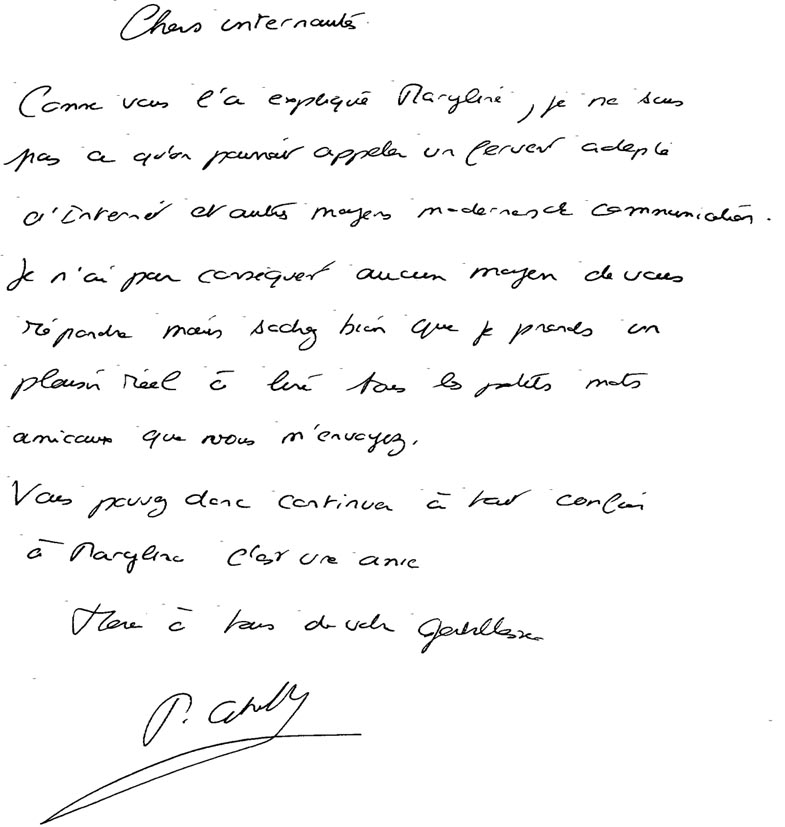 Chers internautes.
Comme vous l'a expliqué Maryline, je ne suis
pas ce qu'on pourrait appeler un fervent adepte
d'Internet et autres moyens modernes de communication.
Je n'ai par conséquent aucun moyen de vous
répondre mais sachez bien que je prends un
plaisir réel à lire tous les petits mots
amicaux que vous m'envoyez.
Vous pouvez donc continuer à tout confier
à Maryline c'est une amie
Merci à tous de votre gentillesse
P.